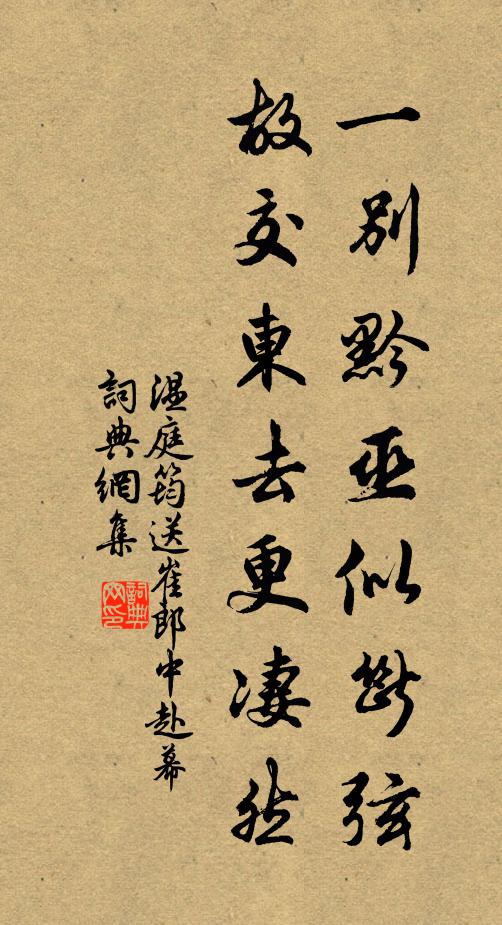 一别黔巫似斷弦
故交東去更凄然
温庭筠送崔郎中赴幕
詞典網集
詞典
网印